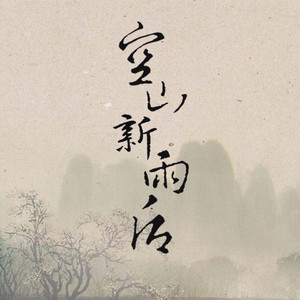 空山新雨后